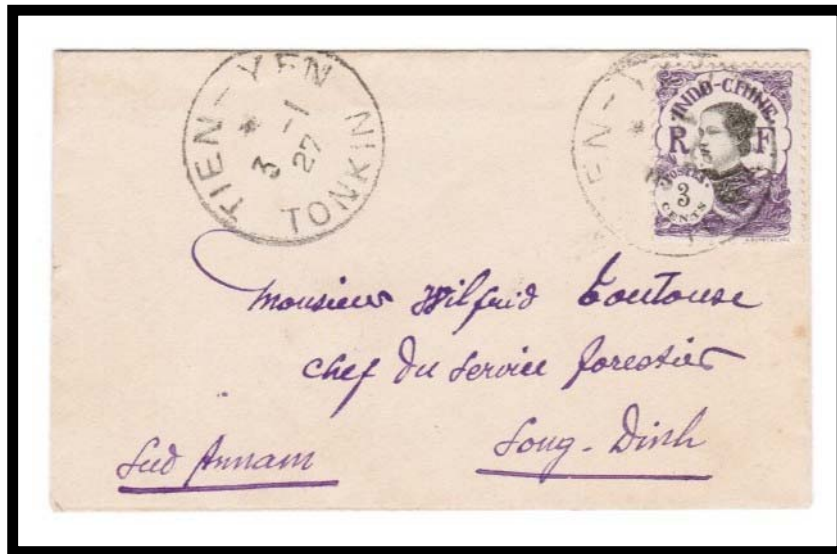 TIEN-YEN
* 3 -1
27
TONKIN
INDO-CHINE
R F
POSTES
3
CENTS
Monsieur Wilfrid Toutouse
chef du service forestier
Song-Dinh
Sud Annam